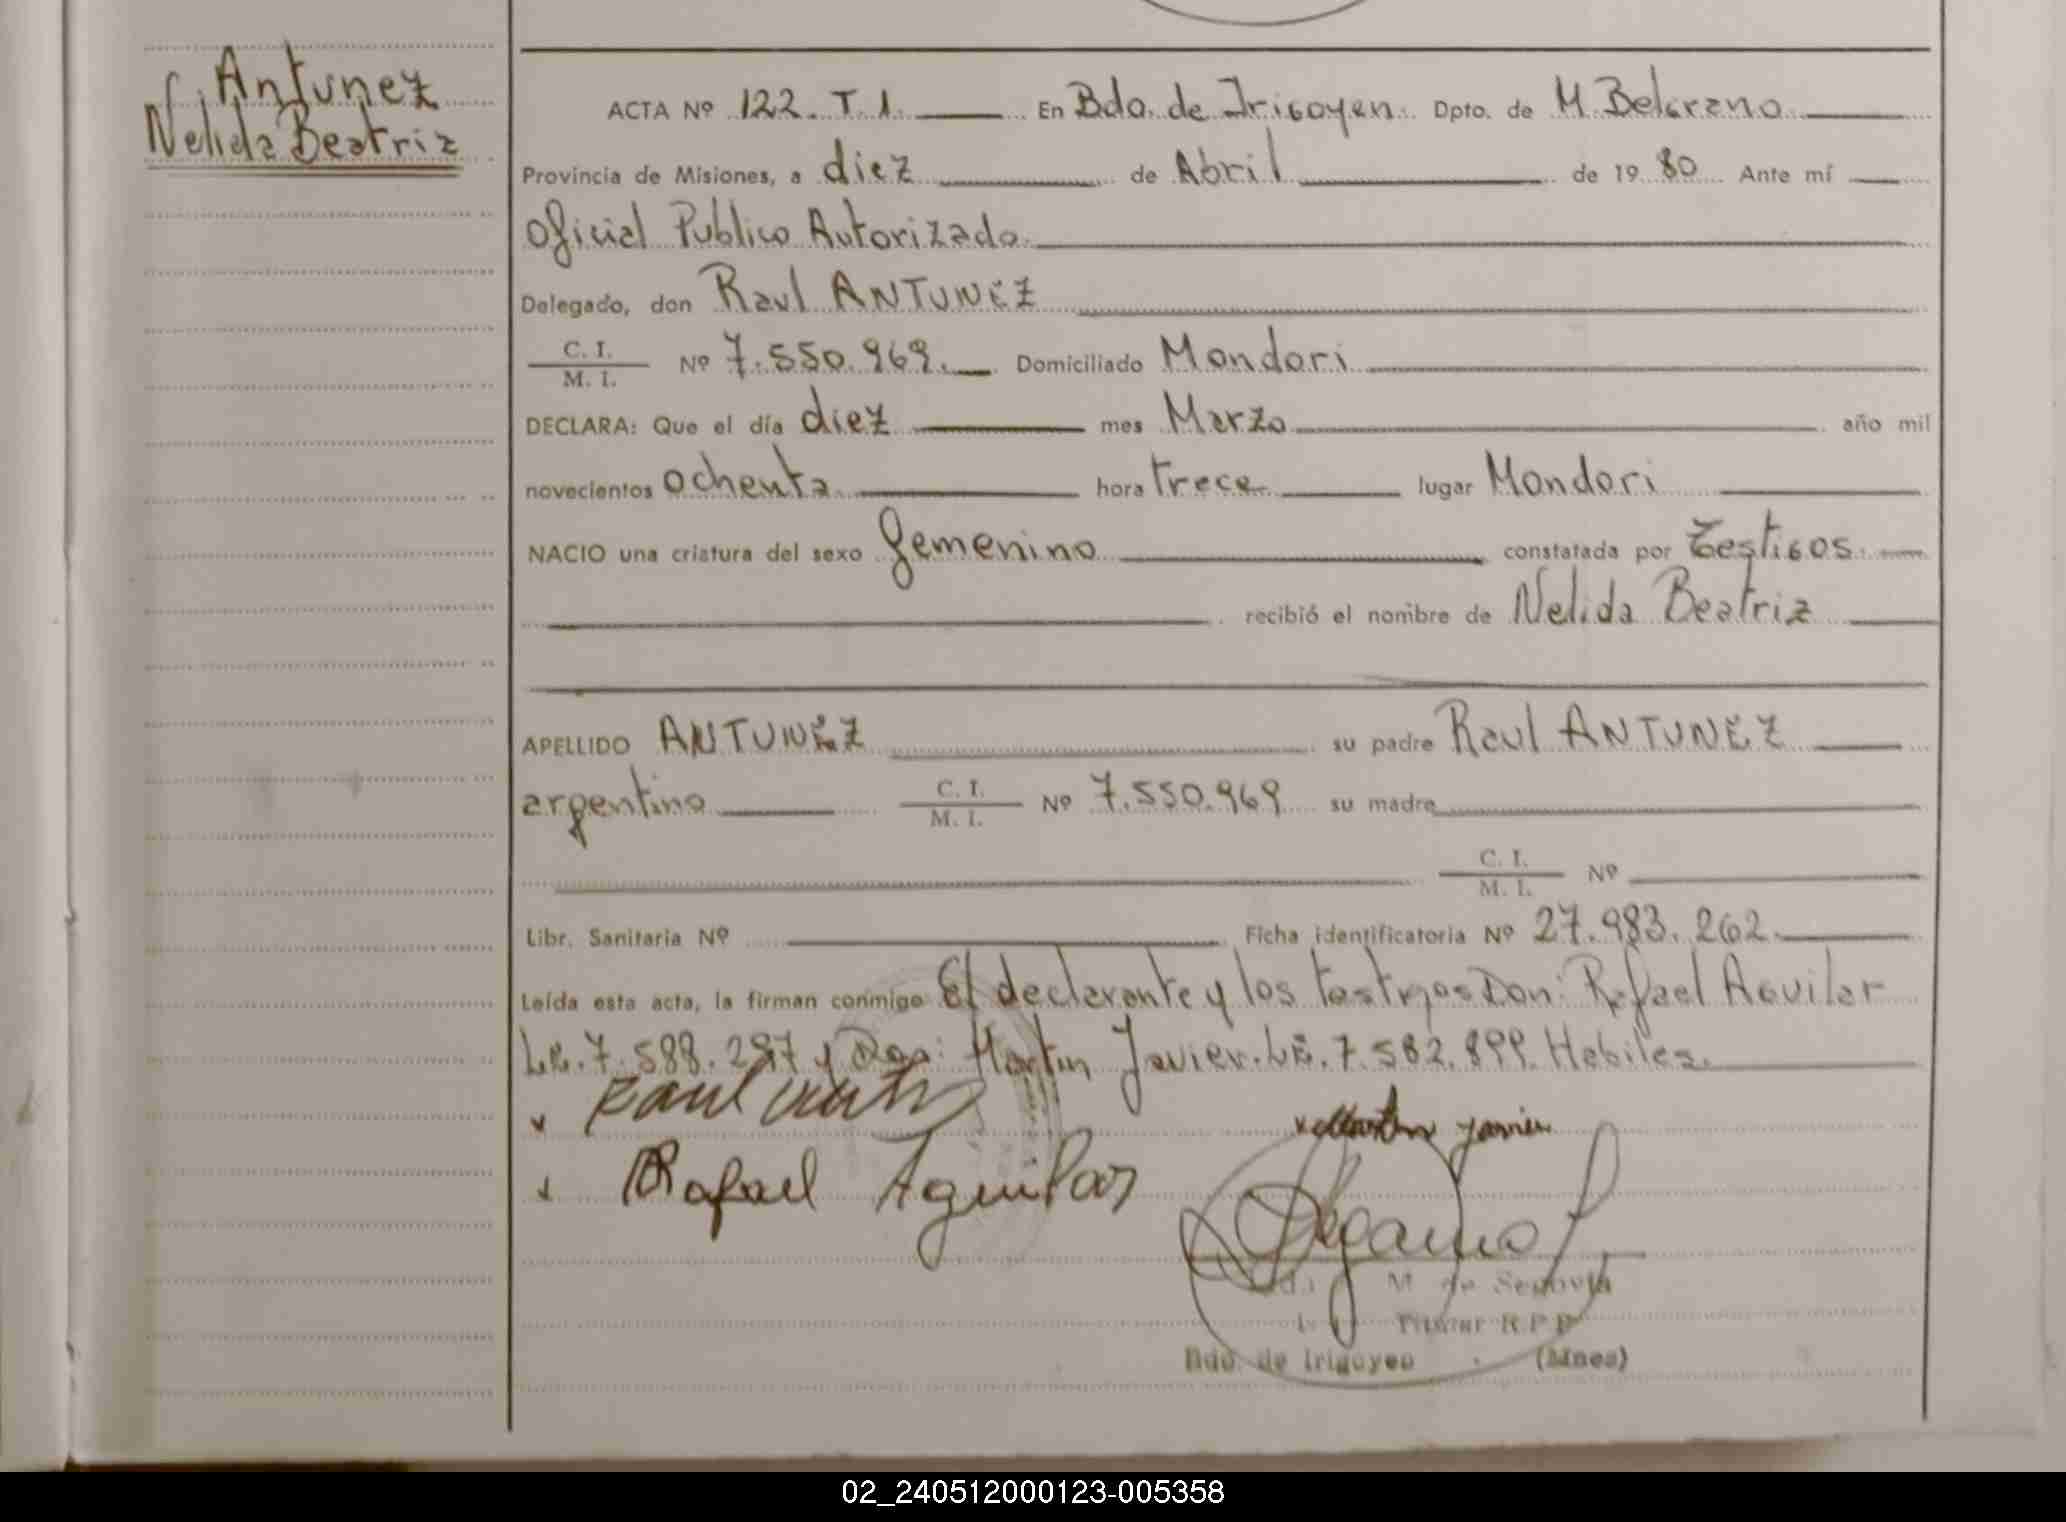 Antunez
Nelida Beatriz
ACTA Nº 122. T. 1. En Bdo. de Irigoyen. Dpto. de M. Belgrano
Provincia de Misiones, a diez de Abril de 19 80 Ante mí
Oficial Publico Autorizado
Delegado, don Raul ANTUNEZ
C. I.
M. I. Nº 7.550.969. Domiciliado Mondori
DECLARA: Que el día diez mes Marzo año mil
novecientos ochenta hora trece lugar Mondori
NACIO una criatura del sexo femenino constatada por Testigos.
recibió el nombre de Nelida Beatriz
APELLIDO ANTUNEZ su padre Raul ANTUNEZ
argentino C. I.
M. I. Nº 7.550.969 su madre
C. I.
M. I. Nº
Libr. Sanitaria Nº Ficha identificatoria Nº 27.983.262.
Leída esta acta, la firman conmigo El declarante y los testigos Don: Rafael Aguilar
L.E. 7.588.297 y Don: Martin Javier. L.E. 7.582.899. Habiles.
Raul
Martin Javier
Rafael Aguilar
M. de Segovia
Titular R.P.P.
Bdo. de Irigoyen (Mnes)
02_240512000123-005358